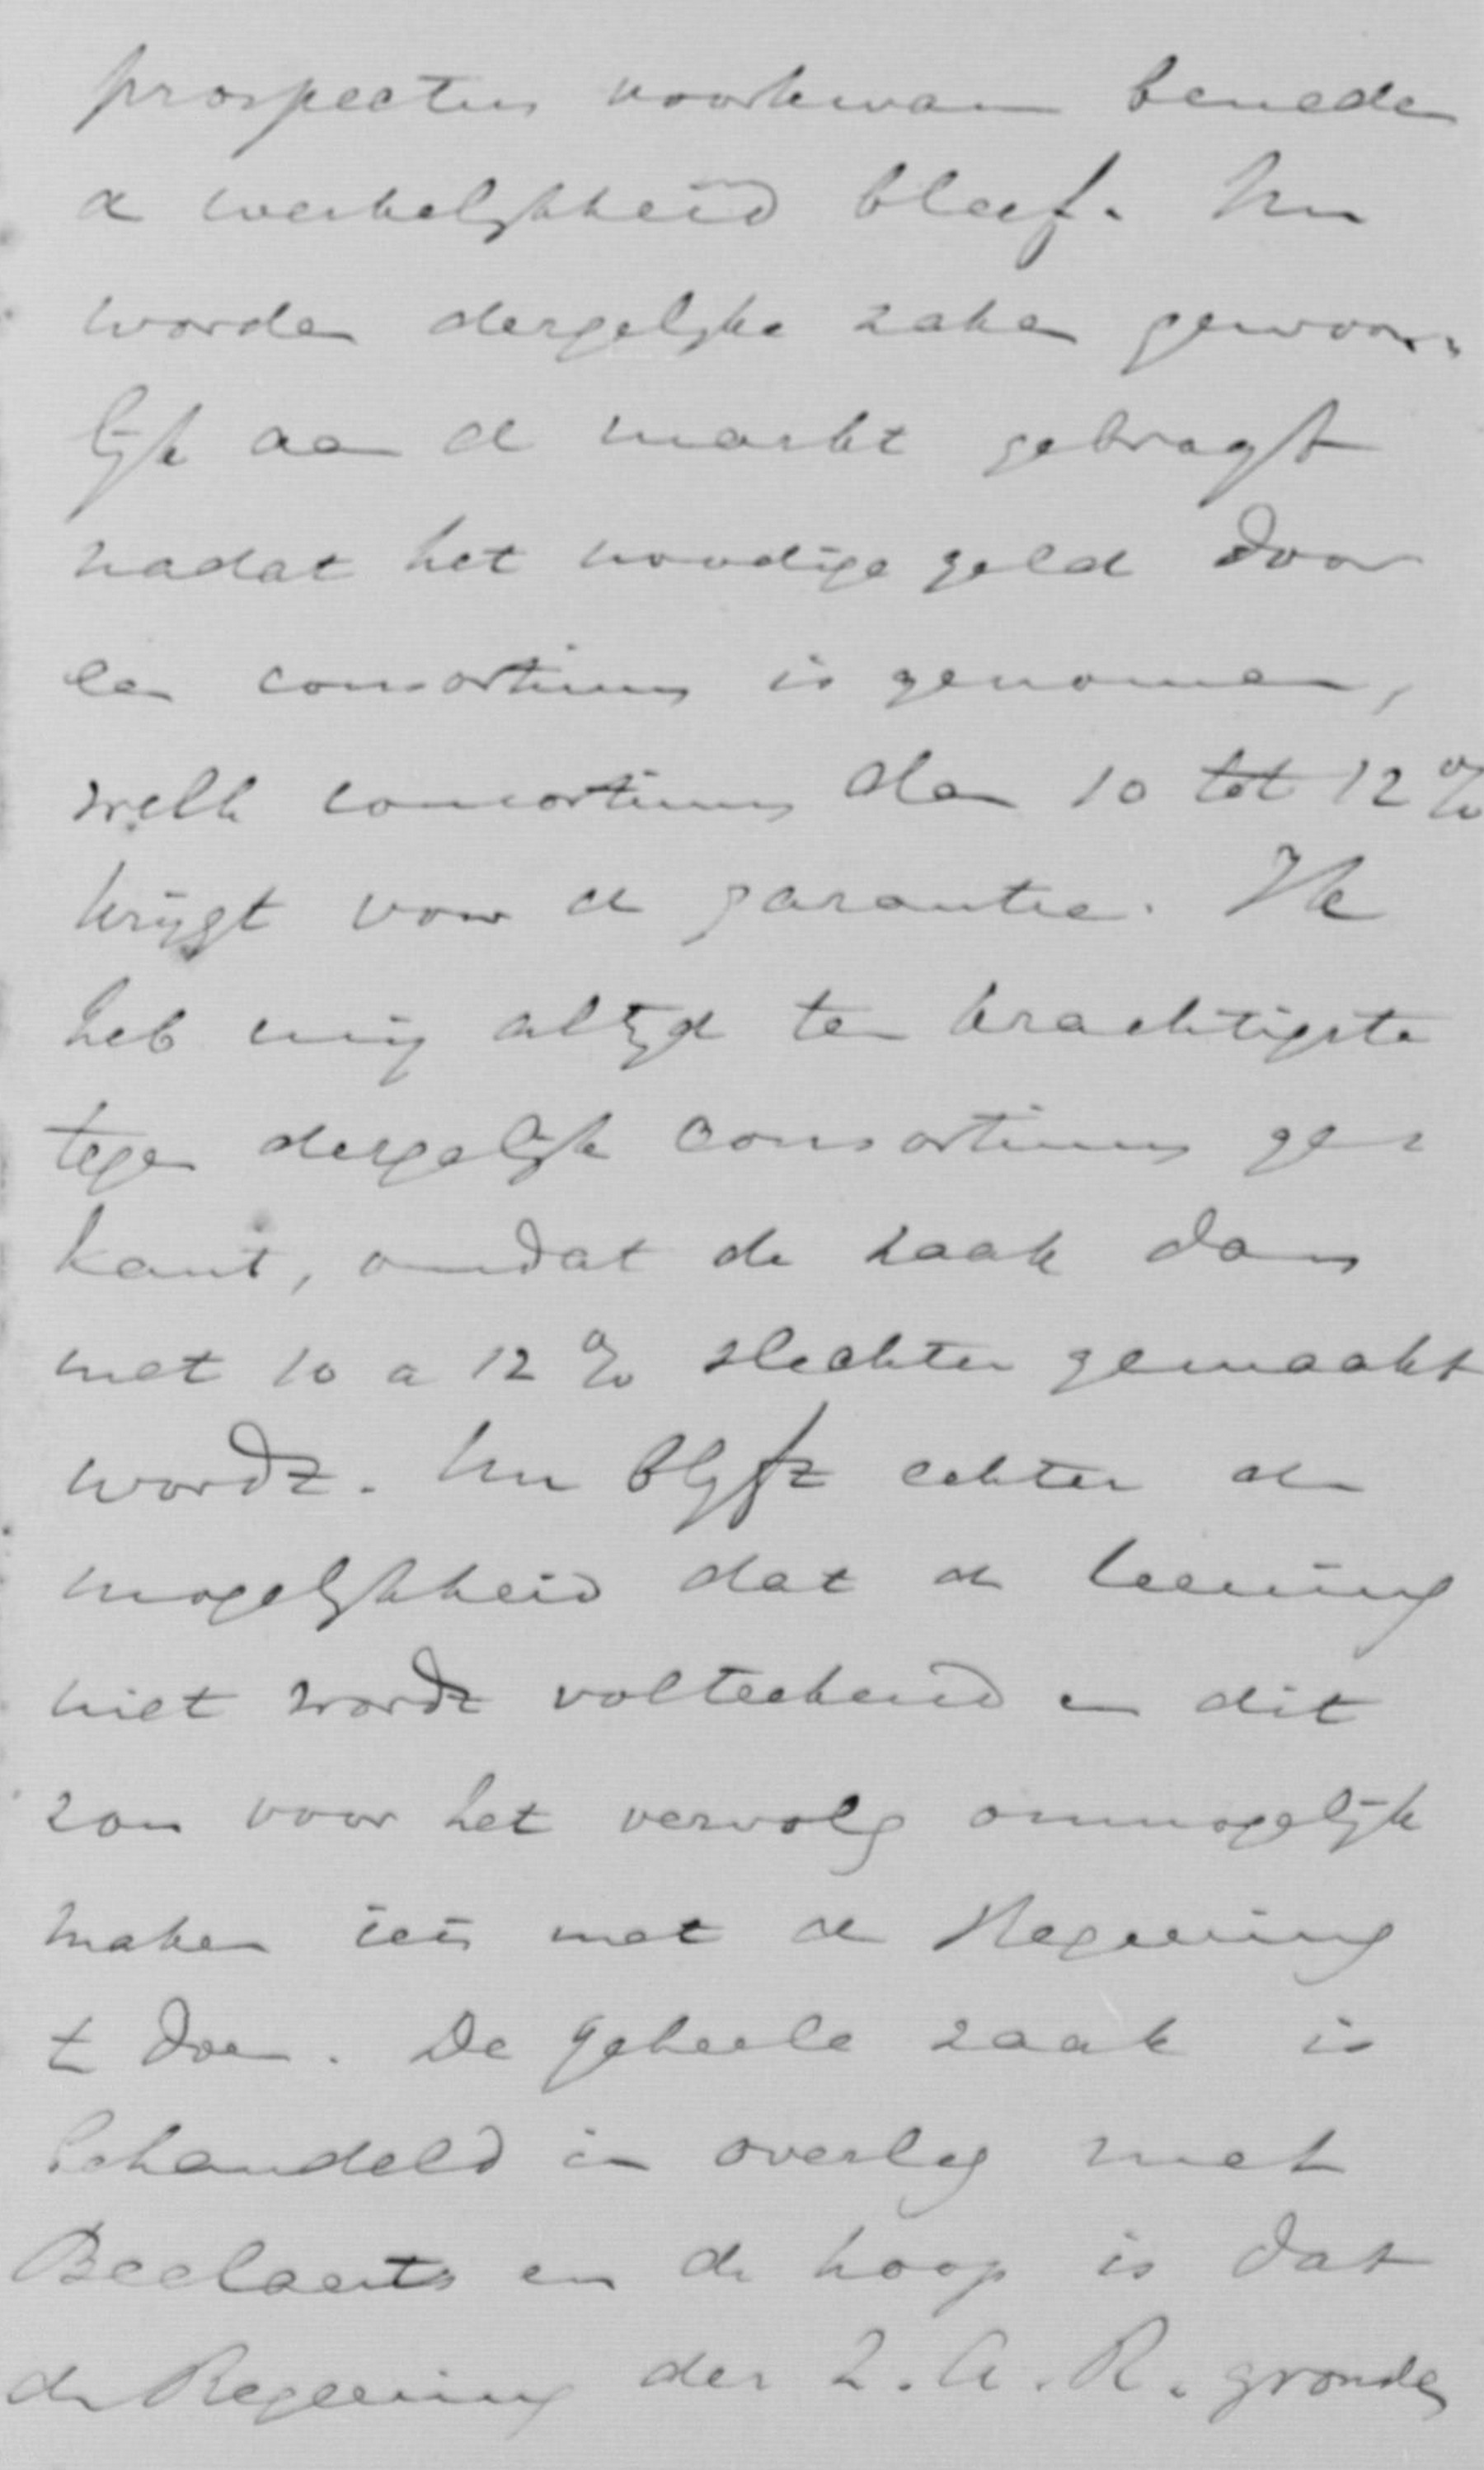 prospectus voorkwam beneden
de werkelijkheid bleef. Nu
worden dergelijke zaken gewoon-
lijk aan de markt gebragt
nadat het noodige geld door
een consortium is genomen,
welk consortium dan 10 tot 12 %
krijgt voor de garantie. Ik
heb mij altijd ten krachtigste
tegen dergelijk consortium ge-
kant, omdat de zaak dan
met 10 a 12 % slechter gemaakt
wordt. Nu blijft echter de
mogelijkheid dat de leening
niet wordt volteekend en dit
zou voor het vervolg onmogelijk
maken iets met de Regeering
te doen. De geheele zaak is
behandeld in overleg met
Beelaerts en de hoop is dat
de Regeering der Z.A.R. gronden